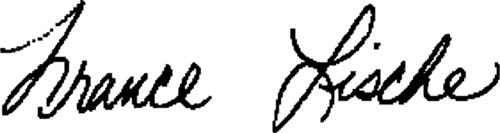 France Lische